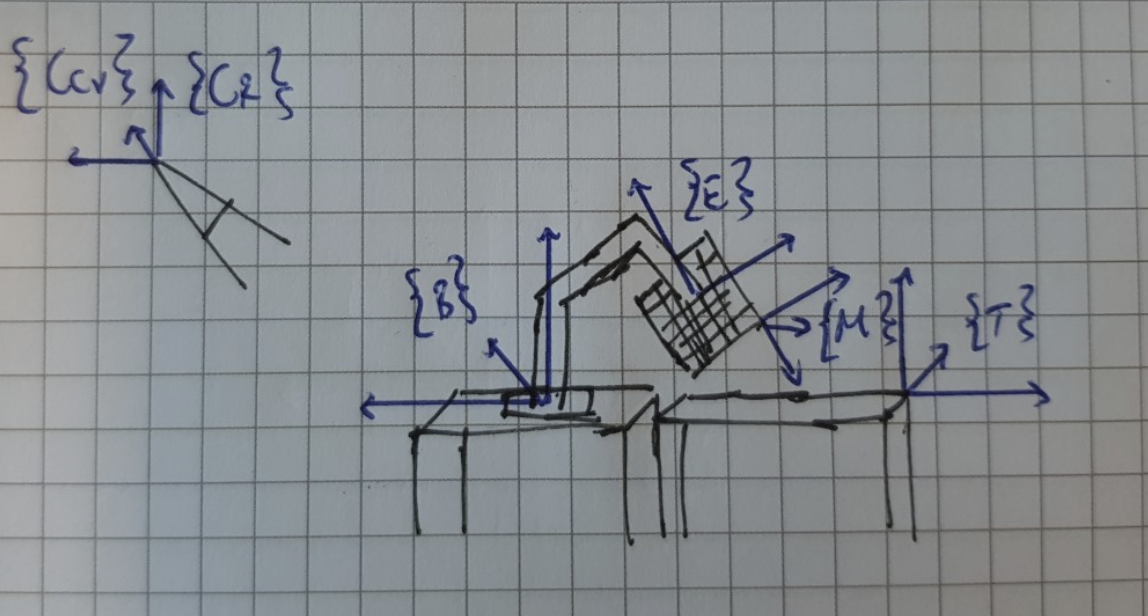 {Ccv} {CR}
{E}
{B}
{M}
{T}